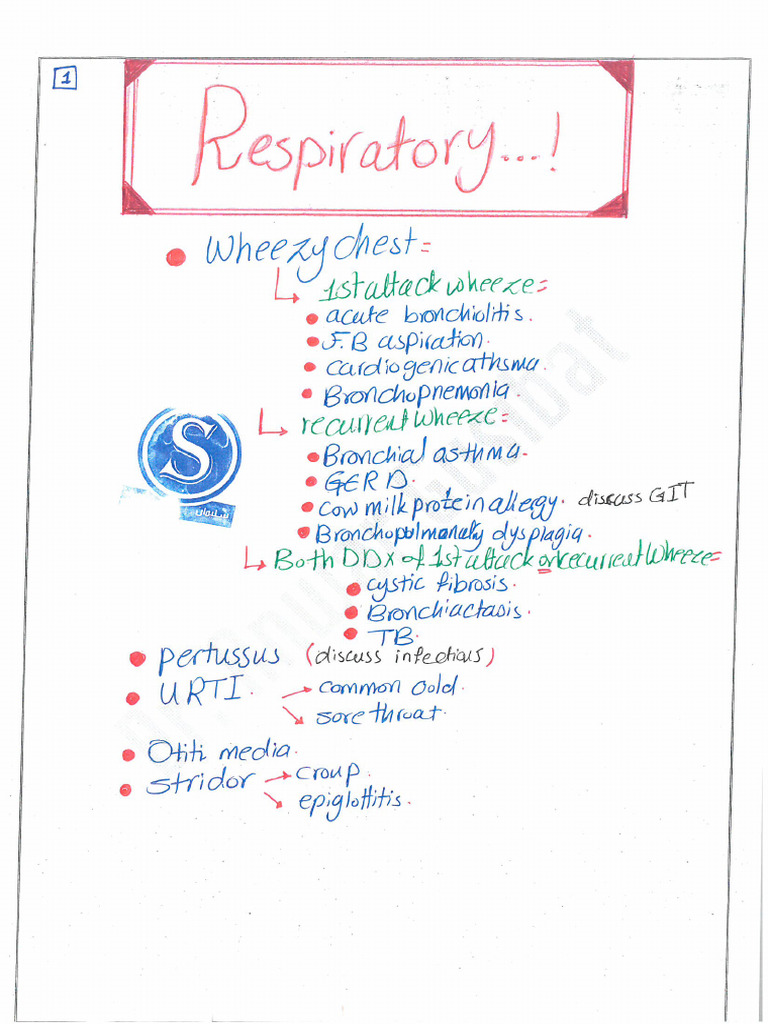 1
Respiratory...!
Wheezy chest=
1st attack wheeze=
acute bronchiolitis.
F.B aspiration.
cardiogenic athsma.
Bronchopnemonia.
recurrent wheeze=
S
Bronchial asthma.
GERD.
cow milk protein allergy. discuss GIT
Bronchopulmonary dysplagia.
Both DDX of 1st attack or recurrent wheeze=
cystic fibrosis.
Bronchiactasis.
TB.
pertussus (discuss infectious)
URTI. common cold.
sore throat.
Otiti media.
stridor croup.
epiglottitis.